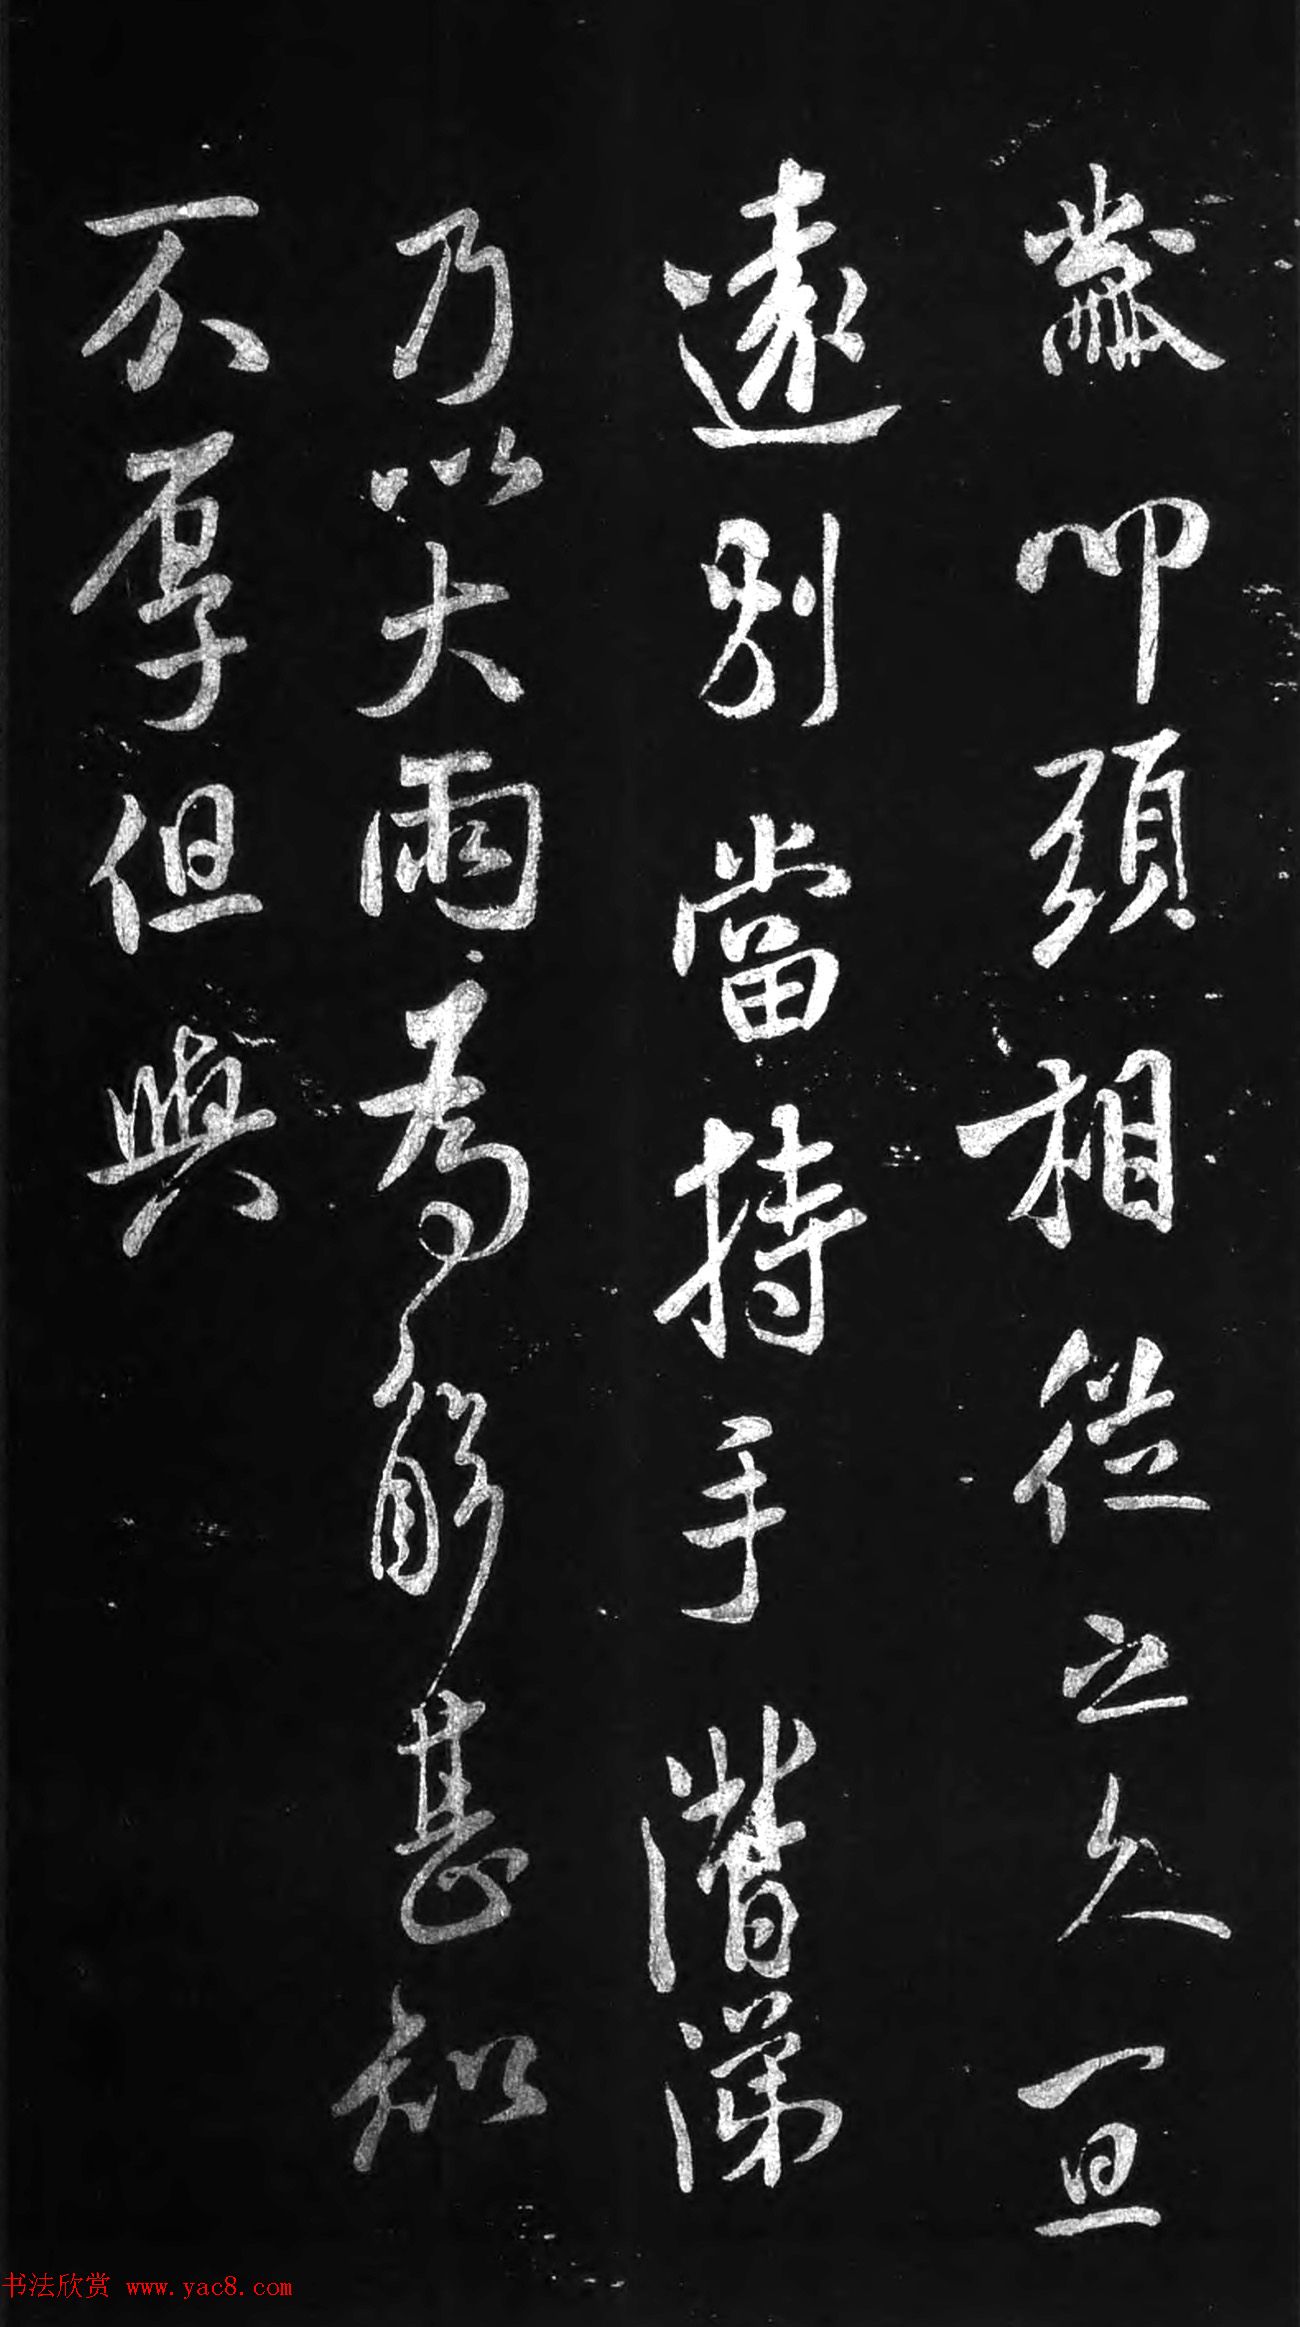 黻叩頭相從之久一旦
遠別當持手潸涕
乃以大雨為解甚知
不厚但與
书法欣赏 www.yac8.com